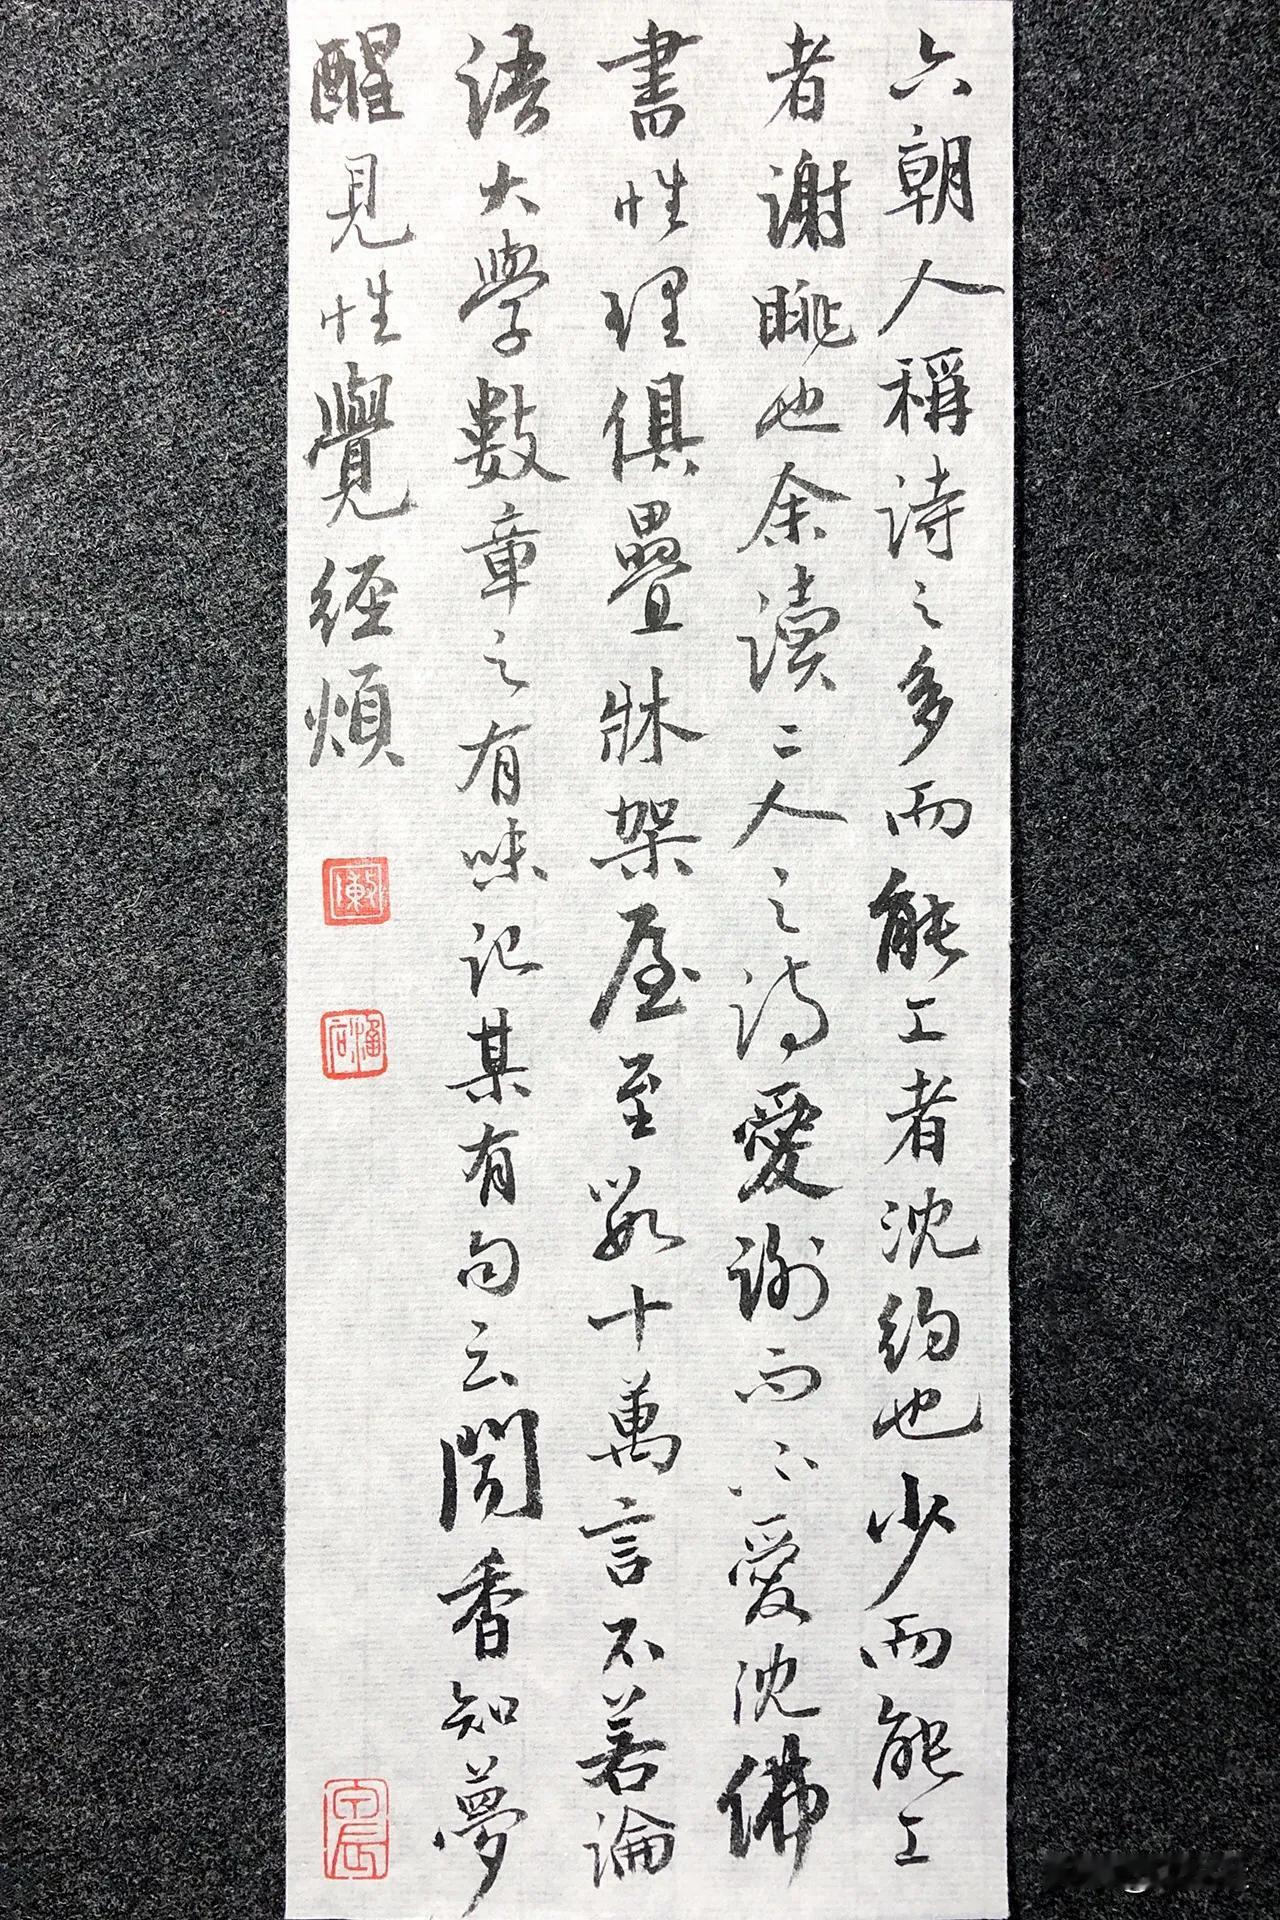 六朝人稱詩之多而能工者沈約也少而能工
者謝眺也余讀二人之詩愛謝而不愛沈佛
書性理俱疊牀架屋至数十萬言不若論
語大學數章之有味記某有句云聞香知夢
醒見性覺經煩